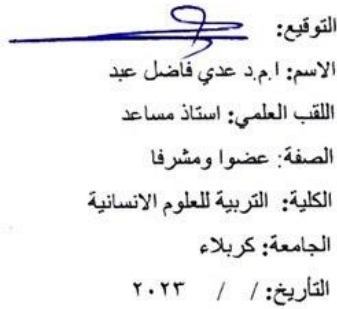 التوقيع:
الاسم: ا.م.د عدي فاضل عبد
اللقب العلمي: استاذ مساعد
الصفة: عضوا ومشرفا
الكلية: التربية للعلوم الانسانية
الجامعة: كربلاء
التأريخ: / / ٢٠٢٣